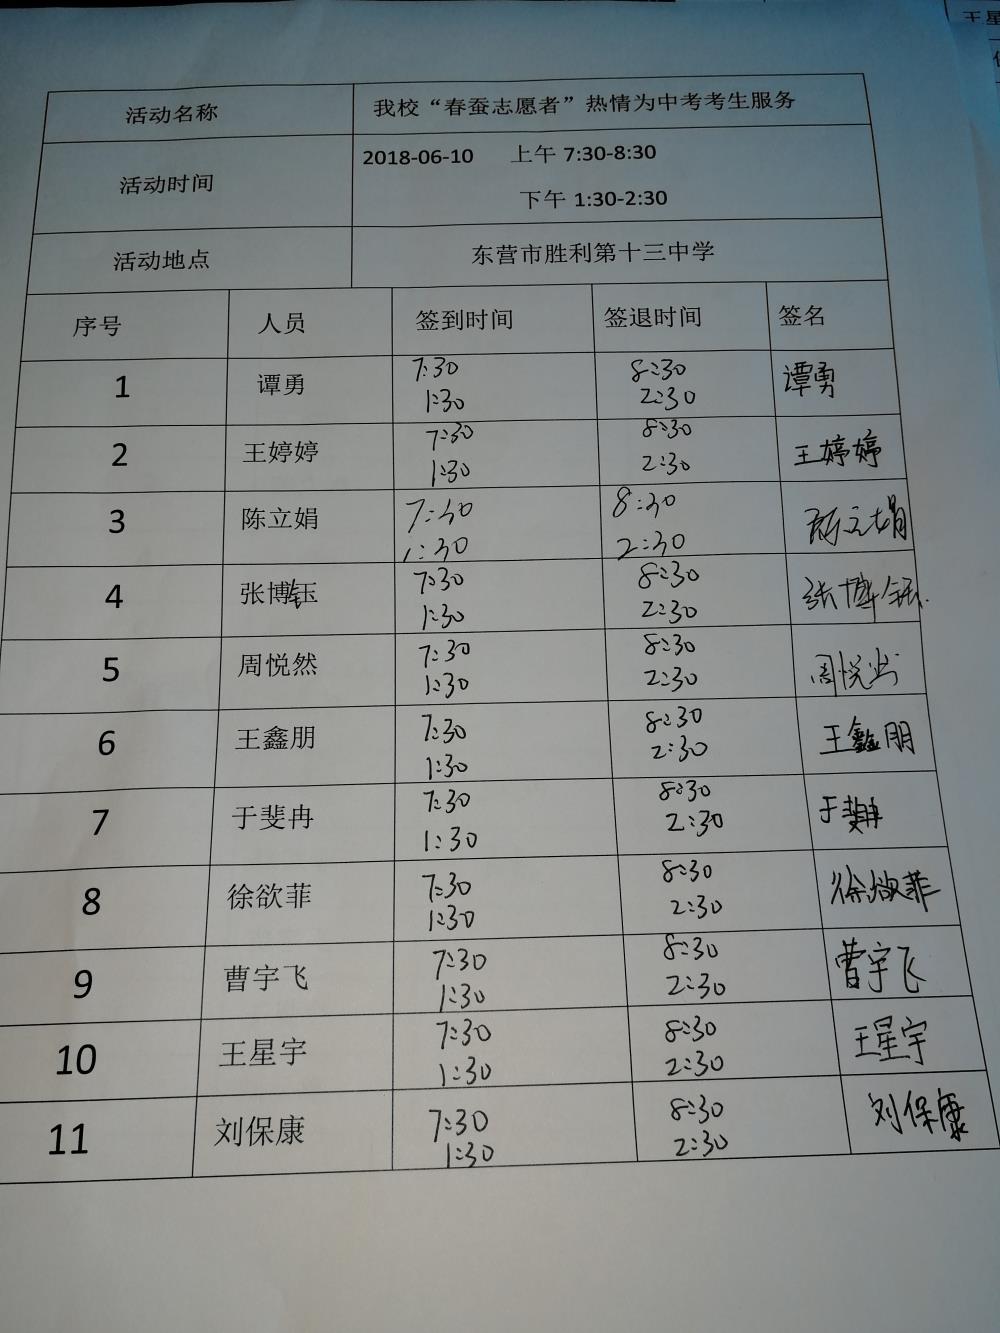 活动名称 我校“春蚕志愿者”热情为中考考生服务
活动时间 2018-06-10 上午 7:30-8:30
下午 1:30-2:30
活动地点 东营市胜利第十三中学
序号 人员 签到时间 签退时间 签名
1 谭勇 7:30 8:30 谭勇
1:30 2:30
2 王婷婷 7:30 8:30 王婷婷
1:30 2:30
3 陈立娟 7:30 8:30 陈立娟
1:30 2:30
4 张博钰 7:30 8:30 张博钰
1:30 2:30
5 周悦然 7:30 8:30 周悦然
1:30 2:30
6 王鑫朋 7:30 8:30 王鑫朋
1:30 2:30
7 于斐冉 7:30 8:30 于斐冉
1:30 2:30
8 徐欲菲 7:30 8:30 徐欲菲
1:30 2:30
9 曹宇飞 7:30 8:30 曹宇飞
1:30 2:30
10 王星宇 7:30 8:30 王星宇
1:30 2:30
11 刘保康 7:30 8:30 刘保康
1:30 2:30